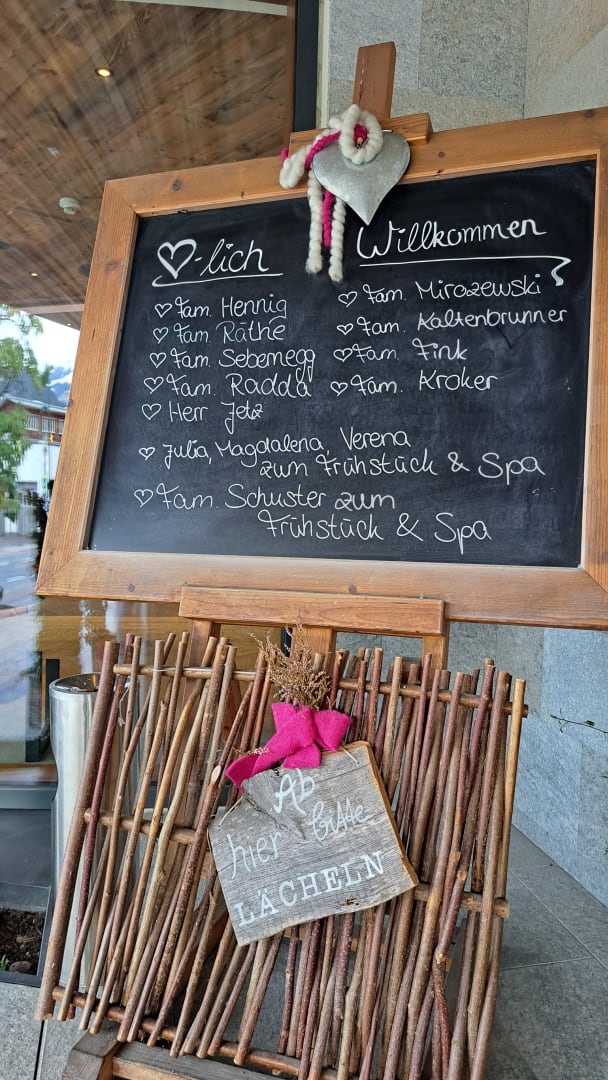 ♡-lich Willkommen
♡ Fam. Hennig
♡ Fam. Räthe
♡ Fam. Sebernegg
♡ Fam. Radda
♡ Herr Jetz
♡ Fam. Mirozewski
♡ Fam. Kaltenbrunner
♡ Fam. Fink
♡ Fam. Kroker
♡ Julia, Magdalena, Verena
zum Frühstück & Spa
♡ Fam. Schuster zum
Frühstück & Spa
Ab
hier bitte
LÄCHELN